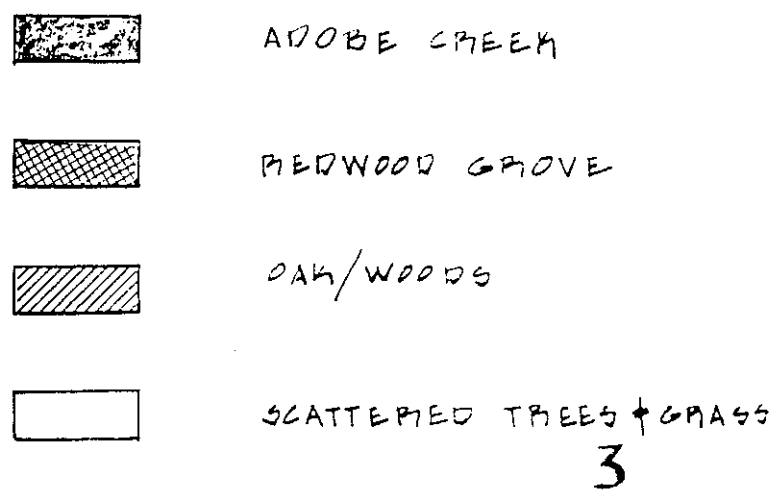 ADOBE CREEK
REDWOOD GROVE
OAK/WOODS
SCATTERED TREES + GRASS
3